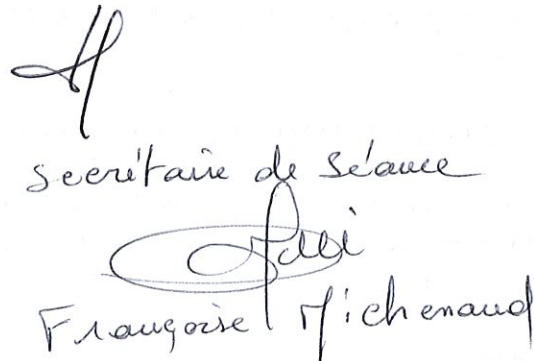 secrétaire de séance
Françoise Michenaud